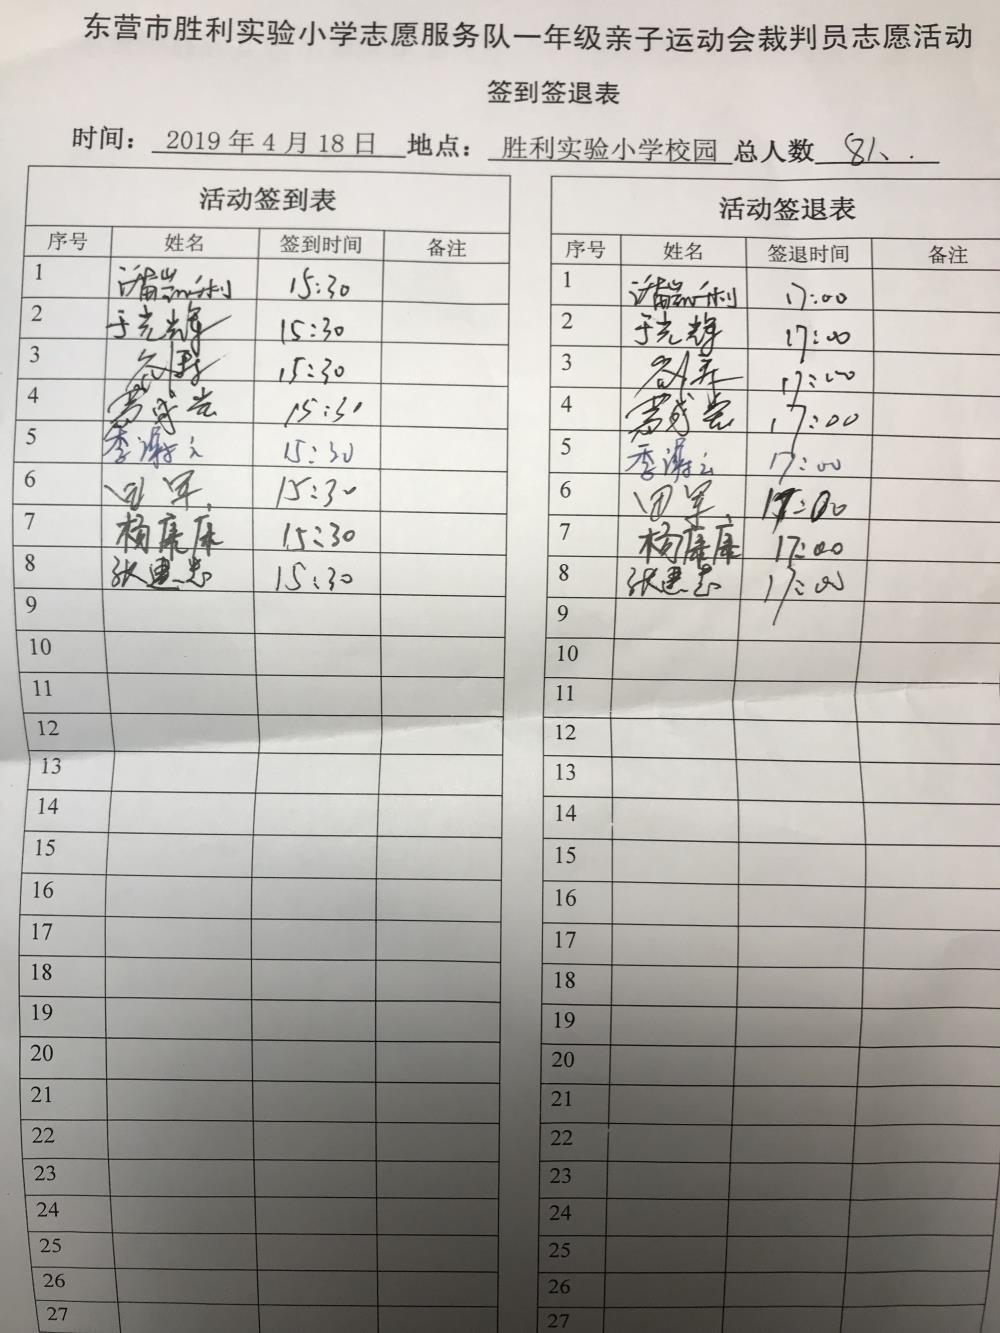 东营市胜利实验小学志愿服务队一年级亲子运动会裁判员志愿活动
签到签退表
时间： 2019 年 4 月 18 日 地点： 胜利实验小学校园 总人数
活动签到表
序号 姓名 签到时间 备注
1 15:30
2 于光辉 15:30
3 15:30
4 15:30
5 15:30
6 田军 15:30
7 杨康康 15:30
8 张惠志 15:30
9
10
11
12
13
14
15
16
17
18
19
20
21
22
23
24
25
26
27
活动签退表
序号 姓名 签退时间 备注
1 17:00
2 于光辉 17:00
3 17:00
4 17:00
5 17:00
6 田军 17:00
7 杨康康 17:00
8 张惠志 17:00
9
10
11
12
13
14
15
16
17
18
19
20
21
22
23
24
25
26
27